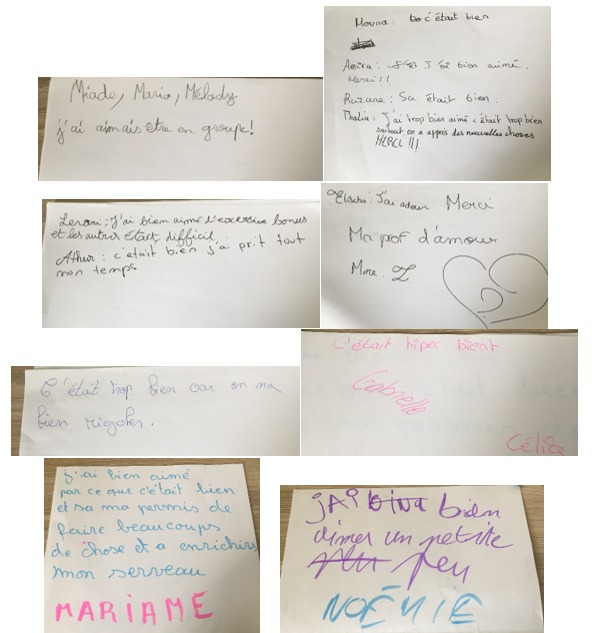 Miade, Maria, Mélady
j'ai aimais être en groupe!
Mouna : c'était bien
Amira : J'ai bien aimé.
Merci!!
Razane : Sa était bien.
Thalia : j'ai trop bien aimé c'était trop bien
surtout on a appris des nouvelles choses
MERCI !!!
Lenani : j'ai bien aimé l'exercice bonus
et les autres était difficil
Athur : c'était bien j'ai prit tout
mon temps
J'ai adoure Merci
Ma prof d'amour
Mme. Z
C'était trop bien car on na
bien rigoler.
C'était hiper bient
Gabrielle
Célia
j'ai bien aimé
par ce que c'était bien
et sa ma permis de
faire beaucoups
de chose et a enrichirs
mon serveau
MARIAME
jAi bien
aimer un petite
peu
NOÉMIE